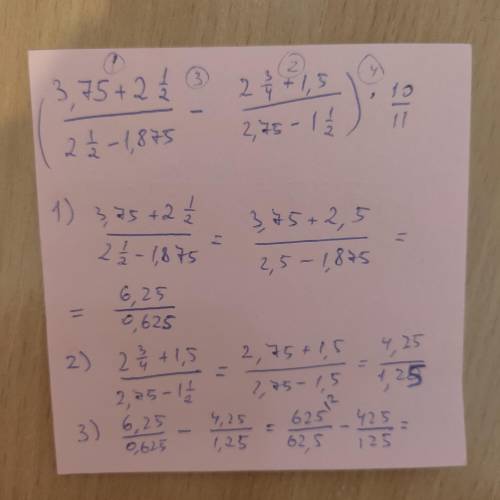 ① ③ ② ④
( (3,75 + 2 1/2) / (2 1/2 − 1,875) − (2 3/4 + 1,5) / (2,75 − 1 1/2) ) · 10/11
1) (3,75 + 2 1/2) / (2 1/2 − 1,875) = (3,75 + 2,5) / (2,5 − 1,875) =
= 6,25 / 0,625
2) (2 3/4 + 1,5) / (2,75 − 1 1/2) = (2,75 + 1,5) / (2,75 − 1,5) = 4,25 / 1,25
3) 6,25 / 0,625 − 4,25 / 1,25 = 625 / 62,5 − 425 / 125 =